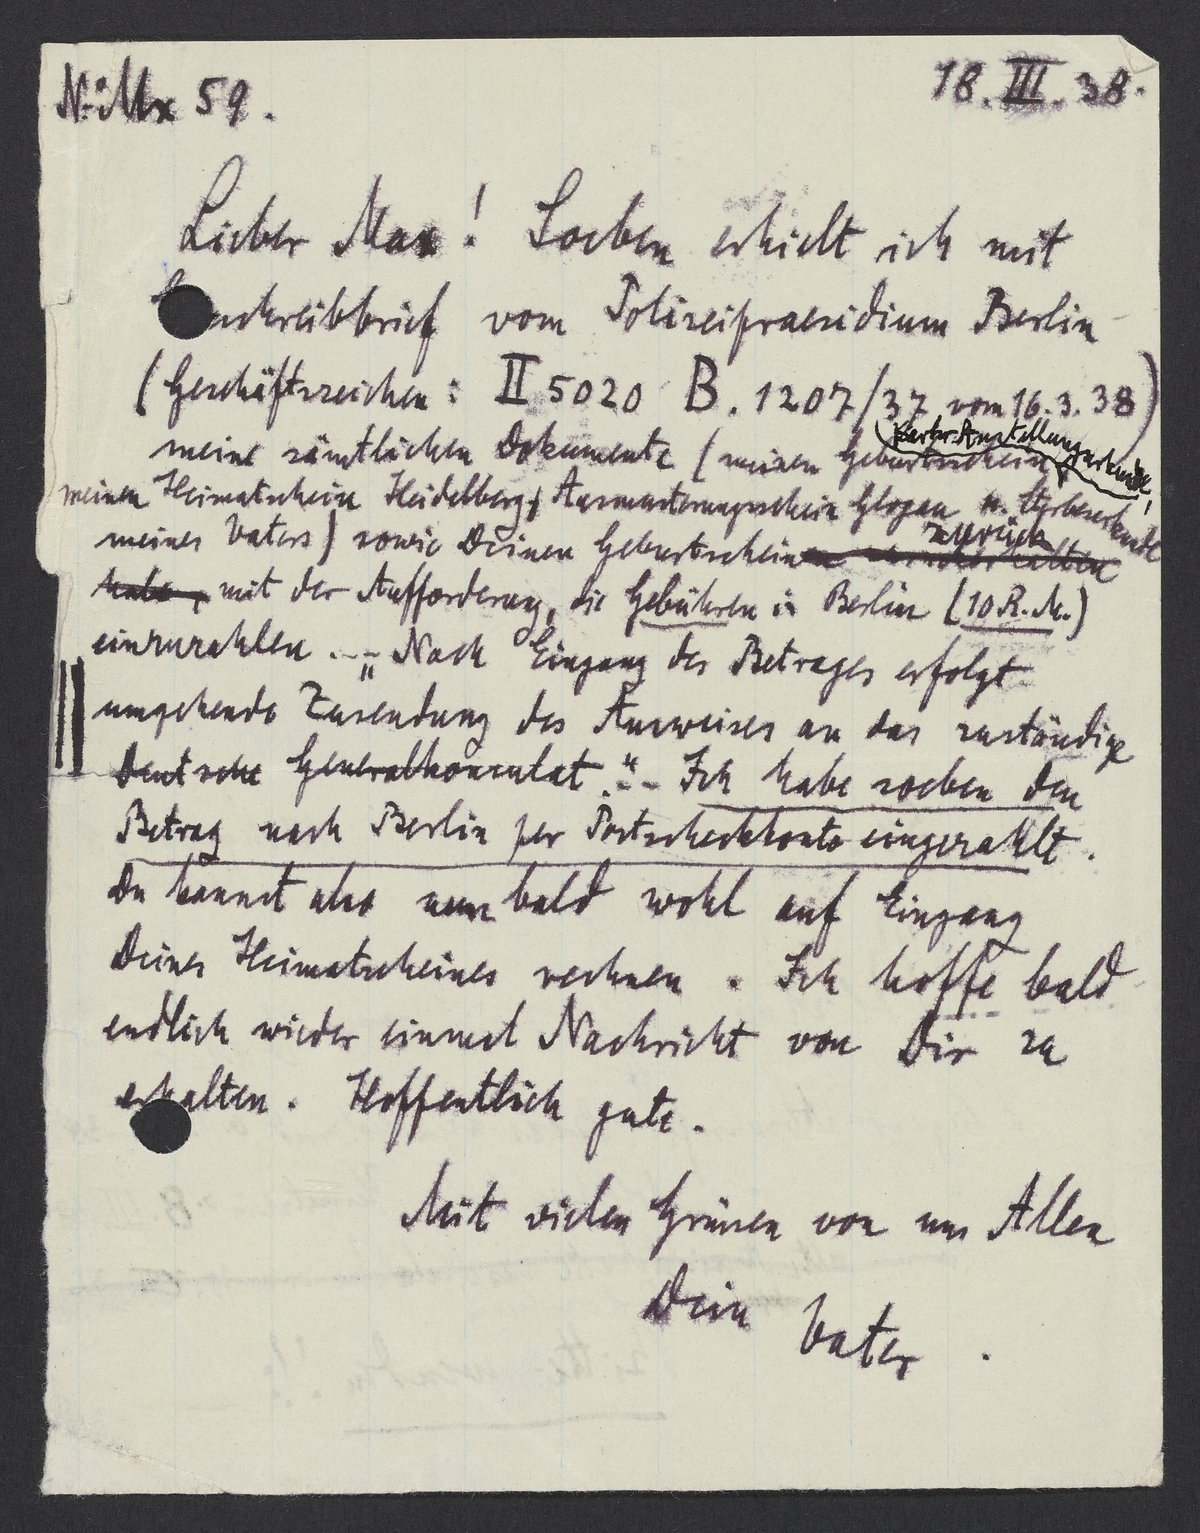 No Mx 59.
18.III.38.
Lieber Max! Soeben erhielt ich mit
schreibbrief vom Polizeipraesidium Berlin
(Geschäftszeichen: II 5020 B. 1207/37 vom 16.3.38)
meine sämtlichen Dokumente (meinen Geburtsschein,
meinen Heimatschein Heidelberg, Ausmusterungsschein Glogau u. Sterbeurkunde
meines Vaters) sowie Deinen Geburtschein zurück
habe, mit der Aufforderung, die Gebühren in Berlin (10 R.M.)
einzuzahlen. -- „Nach Eingang des Betrages erfolgt
umgehende Zusendung des Ausweises an das zuständige
Deutsche Generalkonsulat." -- Ich habe soeben den
Betrag nach Berlin per Postscheckkonto eingezahlt.
Du kannst also nun bald wohl auf Eingang
Deines Heimatscheines rechnen. Ich hoffe bald
endlich wieder einmal Nachricht von Dir zu
erhalten. Hoffentlich gute.
Mit vielen Grüssen von uns Allen
Dein Vater.